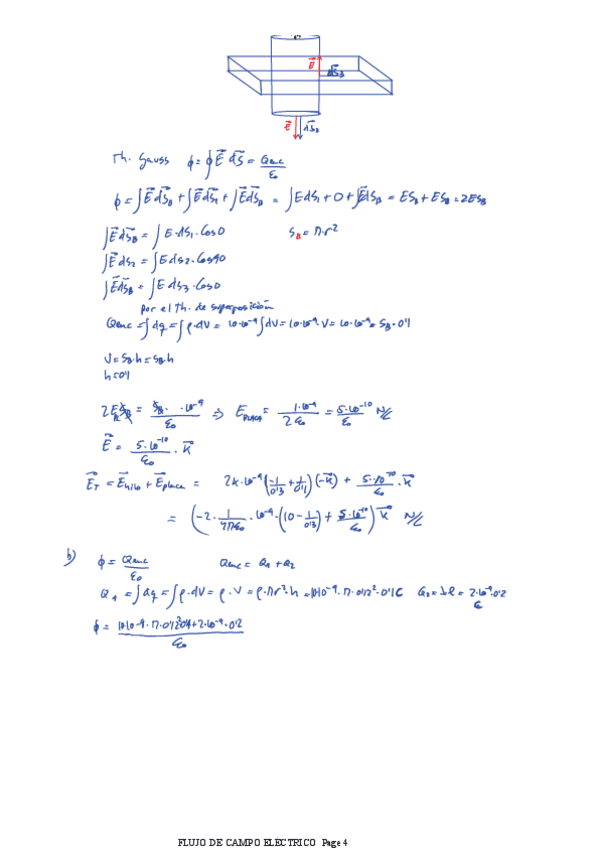 E⃗ dS⃗₃
E⃗ dS⃗₂
Th. Gauss φ = ∮ E⃗ dS⃗ = Qenc/ε₀
φ = ∫E⃗dS⃗B + ∫E⃗dS⃗₁ + ∫E⃗dS⃗B = ∫EdS₁ + 0 + ∫EdSB = ESB + ESB = 2ESB
∫E⃗dS⃗B = ∫E·dS₁·Cos0 SB = π·r²
∫E⃗dS₂ = ∫EdS₂·Cos90
∫E⃗dS⃗B = ∫EdS₃·Cos0
por el Th. de superposición
Qenc = ∫dq = ∫ρ·dV = 10·10⁻⁹∫dV = 10·10⁻⁹·V = 10·10⁻⁹ · SB·0'1
V = SB·h = SB·h
h = 0'1
⇒ EPLACA = 1·10⁻⁹/2ε₀ = 5·10⁻¹⁰/ε₀ N/C
E⃗ = 5·10⁻¹⁰/ε₀ · K⃗
E⃗T = E⃗hilo + E⃗placa = 2K·10⁻⁹(-1/0'3 + 1/0'1)(-K⃗) + 5·10⁻¹⁰/ε₀ · K⃗
= (-2·1/4πε₀·10⁻⁹·(10 - 1/0'3) + 5·10⁻¹⁰/ε₀) K⃗ N/C
b) φ = Qenc/ε₀ Qenc = Q₁ + Q₂
Q₁ = ∫dq = ∫ρ·dV = ρ·V = ρ·πr²·h = 10·10⁻⁹·π·0'12²·0'1 C Q₂ = λ·l = 2·10⁻⁹·0'2 C
φ = 10·10⁻⁹·π·0'12²·0'1 + 2·10⁻⁹·0'2/ε₀
FLUJO DE CAMPO ELÉCTRICO Page 4